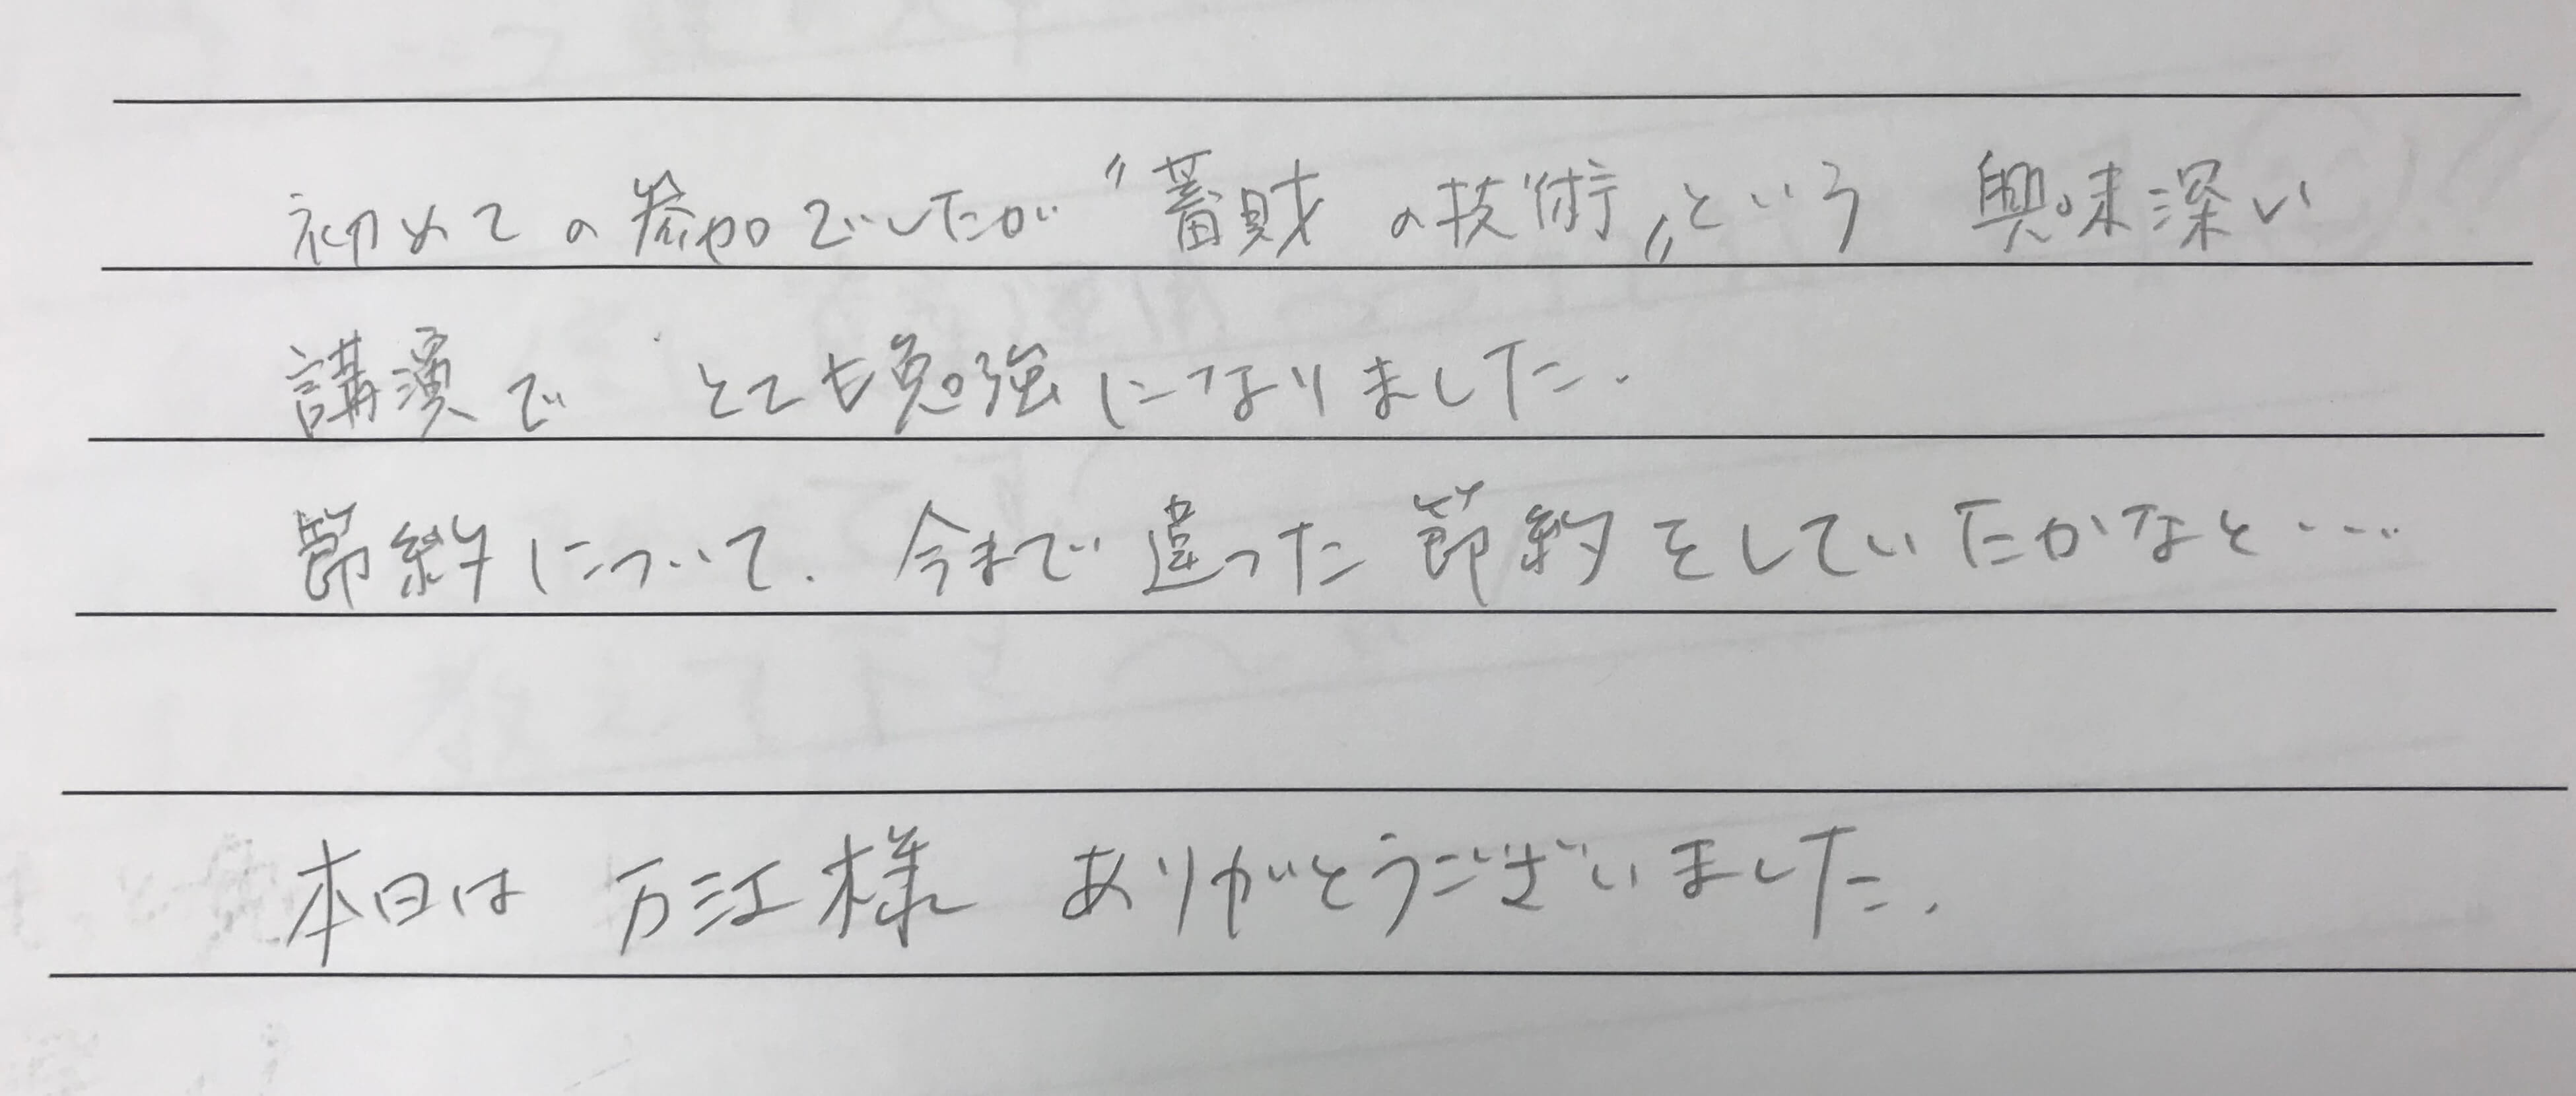 初めての参加でしたが〝蓄財の技術〟という 興味深い
講演で とても勉強になりました.
節約について. 今まで違った節約をしていたかなと・・・・
本日は 万江様 ありがとうございました.